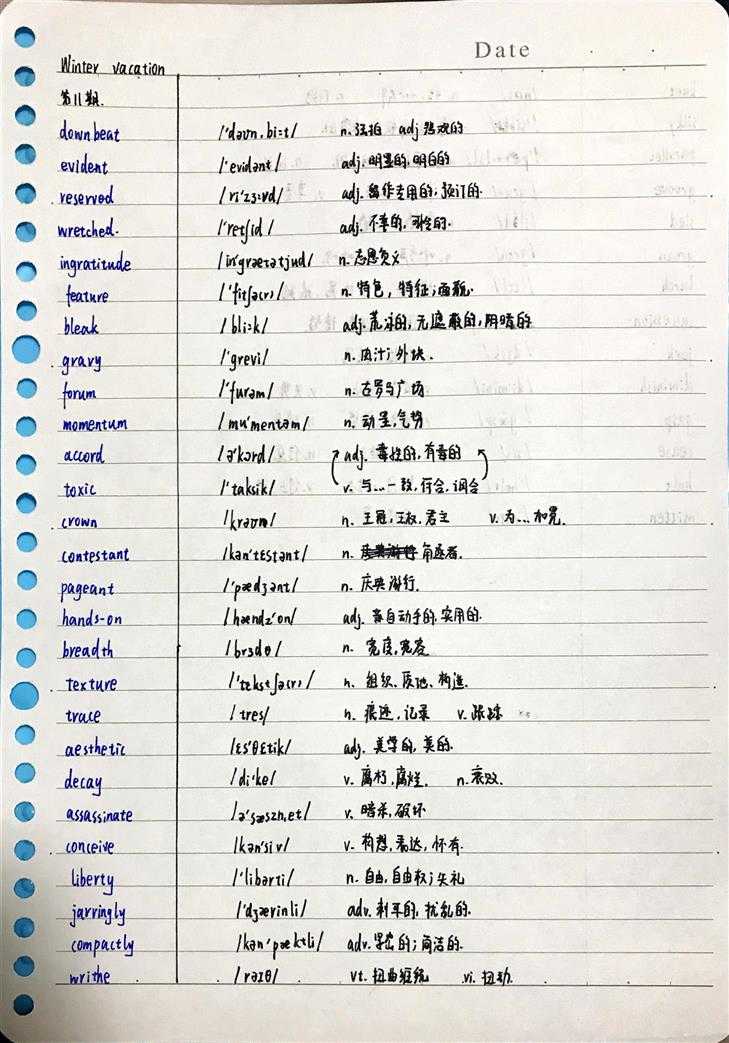 Date
Winter vacation
第11期.
downbeat /'daʊn,bi:t/ n. 强拍 adj 悲观的
evident /'evidənt/ adj. 明显的,明白的
reserved /ri'zɜ:vd/ adj. 留作专用的;预订的.
wretched. /'retʃid/ adj. 不幸的,可怜的.
ingratitude /in'grætətjud/ n. 忘恩负义
feature /'fitʃə(r)/ n. 特色,特征;面貌.
bleak /bli:k/ adj. 荒凉的,无遮蔽的,阴暗的
gravy /'grevi/ n. 肉汁;外快.
forum /'furəm/ n. 古罗马广场
momentum /mu'mentəm/ n. 动量,气势
accord /ə'kɔrd/ adj. 毒性的,有毒的
toxic /'taksik/ v. 与...一致,符合,调合
crown /kraʊn/ n. 王冠,王权,君主 v. 为...加冕.
contestant /kən'tɛstənt/ n. 角逐者.
pageant /'pædʒənt/ n. 庆典游行.
hands-on /hændz'on/ adj. 亲自动手的,实用的.
breadth /brɛdθ/ n. 宽度,宽容
texture /'tɛkstʃə(r)/ n. 组织、质地、构造.
trace /tres/ n. 痕迹,记录 v. 跟踪
aesthetic /ɛs'θɛtik/ adj. 美学的,美的.
decay /di'ke/ v. 腐朽,腐烂. n. 衰败.
assassinate /ə'sæsɪn,et/ v. 暗杀,破坏
conceive /kən'siv/ v. 构想,表达,怀有.
liberty /'libərti/ n. 自由,自由权;失礼
jarringly /'dʒærinli/ adv. 刺耳的,扰乱的.
compactly /kən'pæktli/ adv. 紧密的;简洁的.
writhe /raɪθ/ vt. 扭曲缠绕 vi. 扭动.